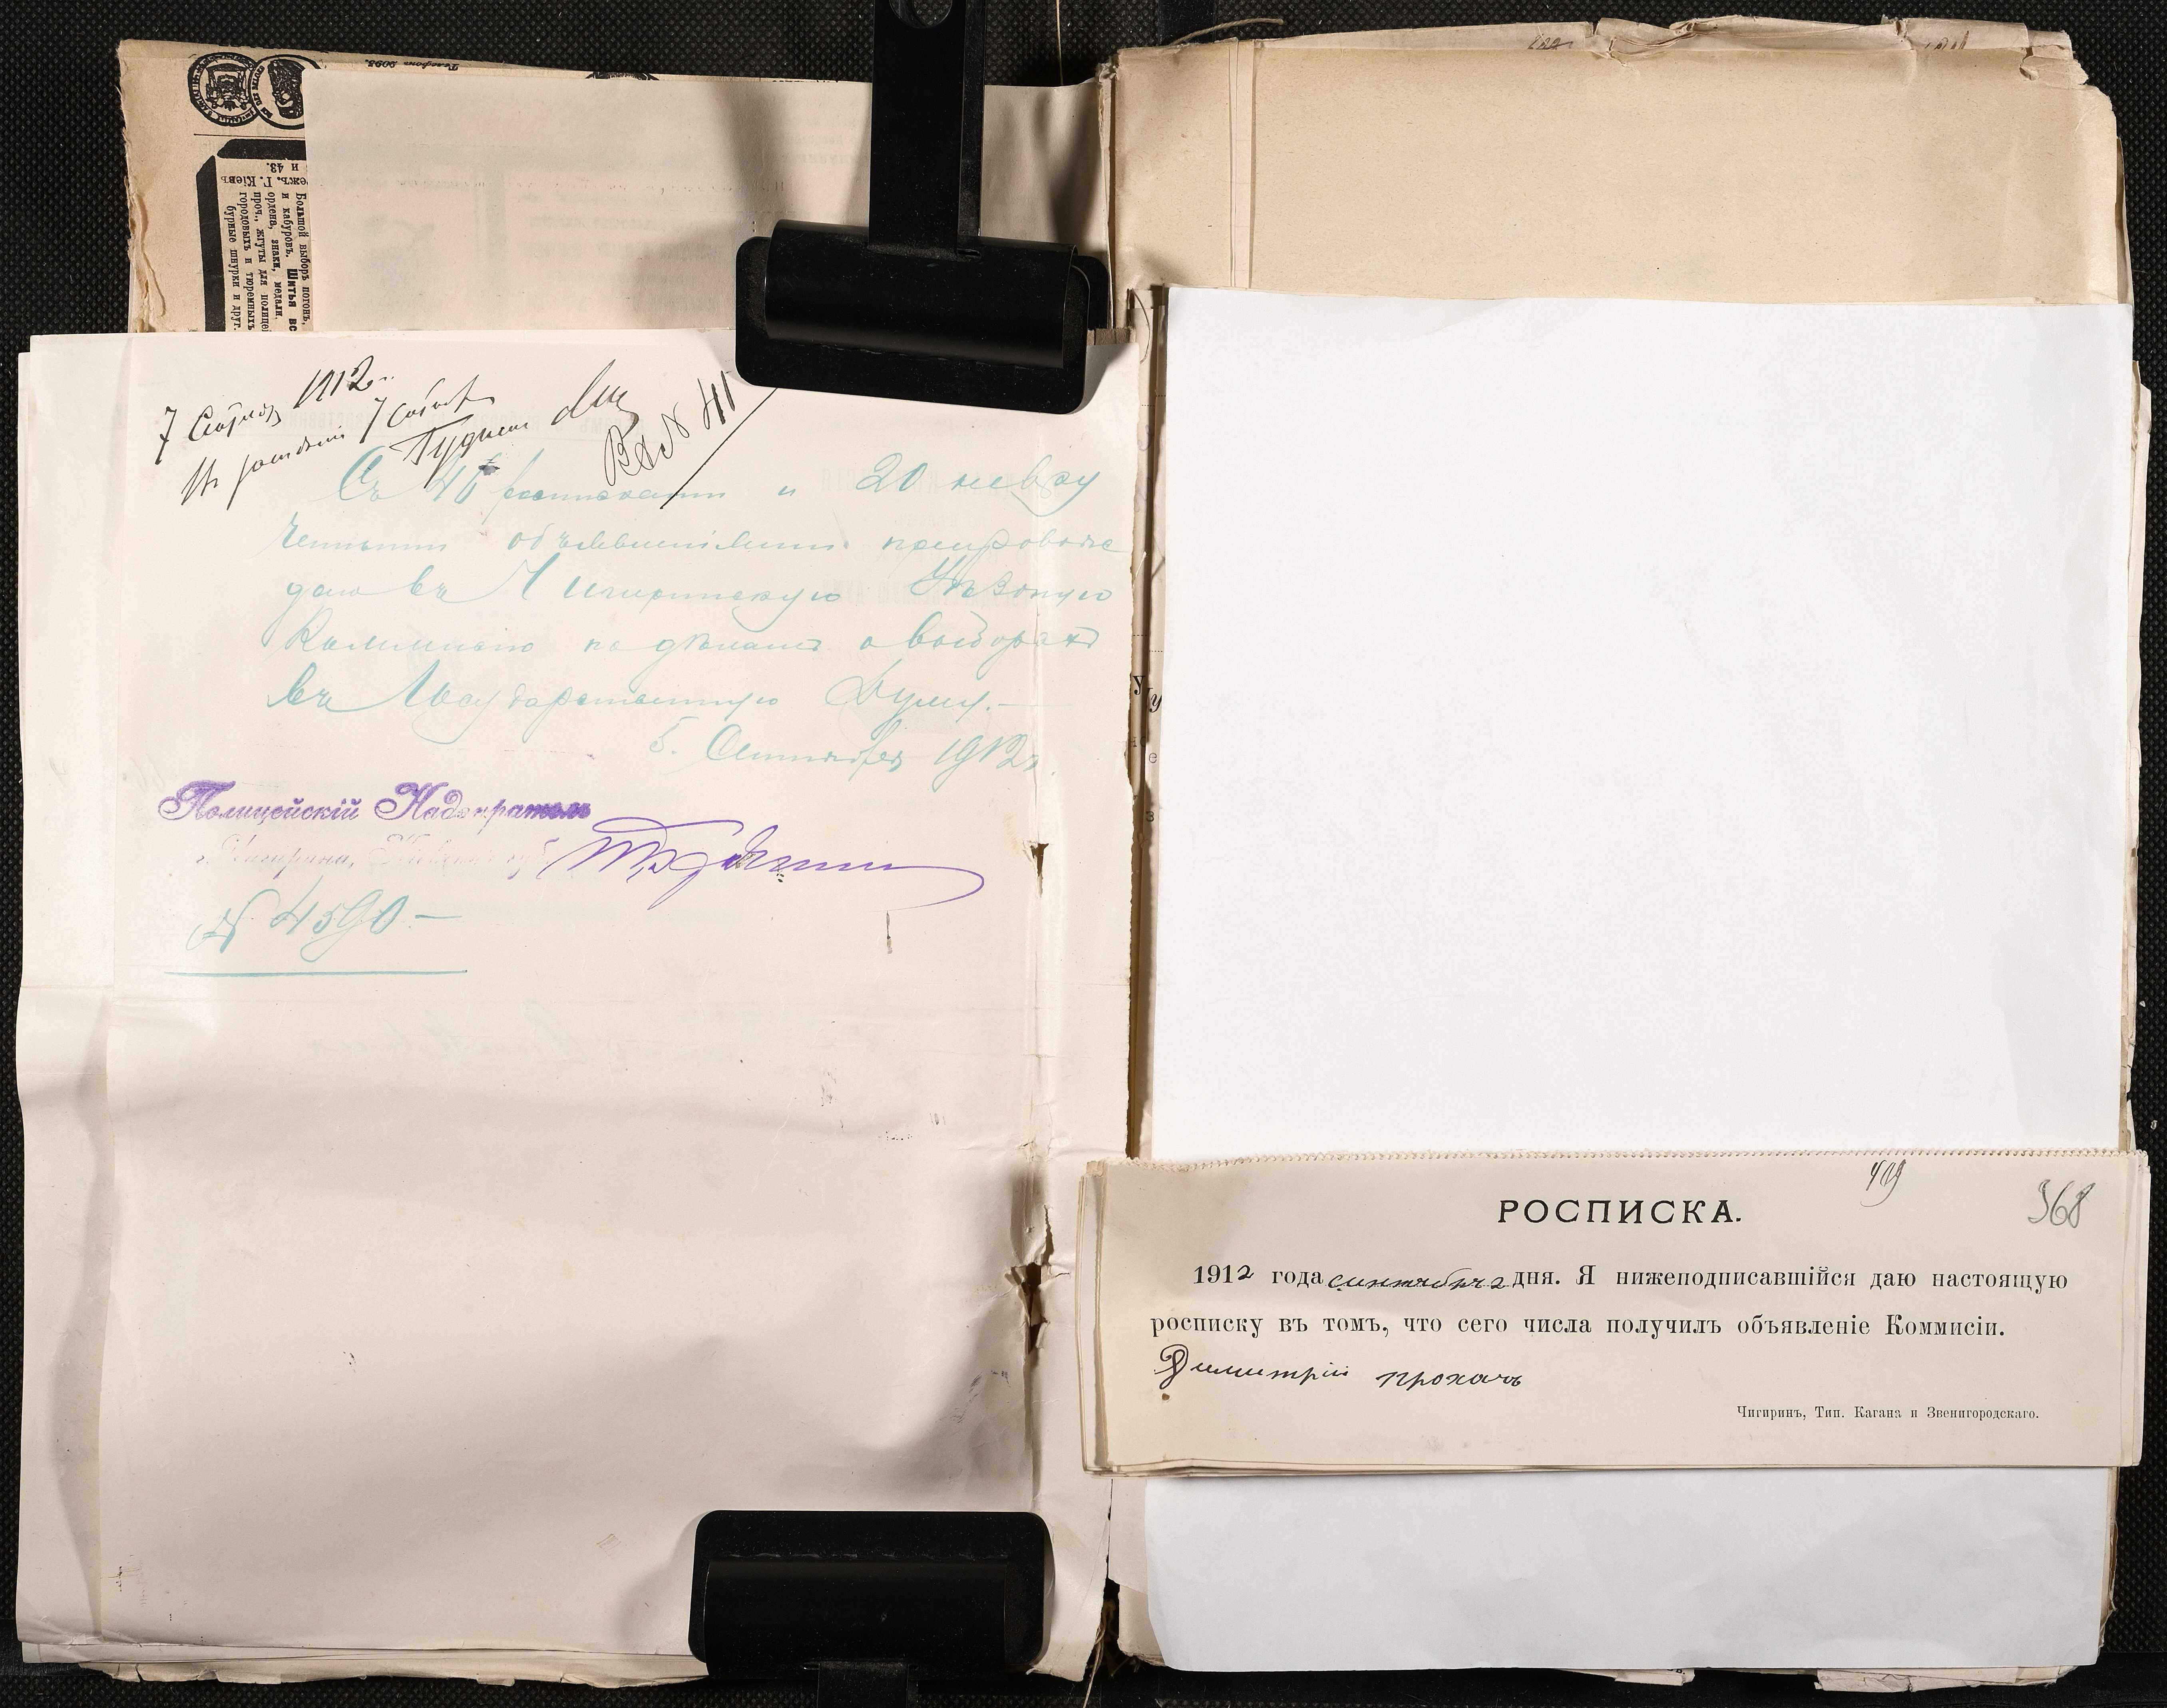 Телефонъ 2093.
и 43.
Г. Кіевъ
Большой выборъ погонъ,
и кабуровъ. Шитья вс
ордена, знаки, медали.
проч., жгуты для полицей
городовыхъ и тюремныхъ
бурные шнурки и друг.
7 Сентября 1912 г.
Вх № 411
Съ 46 расписками и 20 невру
ченными объявленіями препровож
даю въ Чигиринскую Уѣздную
Коммисію по дѣламъ о выборахъ
въ Государственную Думу.—
5. Сентября 1912 г.
Полицейскій Надзиратель
г. Чигирина, Кіевской губ.
№ 4590.—
409
368
РОСПИСКА.
1912 года сентября 2 дня. Я нижеподписавшійся даю настоящую
росписку въ томъ, что сего числа получилъ объявленіе Коммисіи.
Димитрій прохачъ
Чигиринъ, Тип. Кагана и Звенигородскаго.